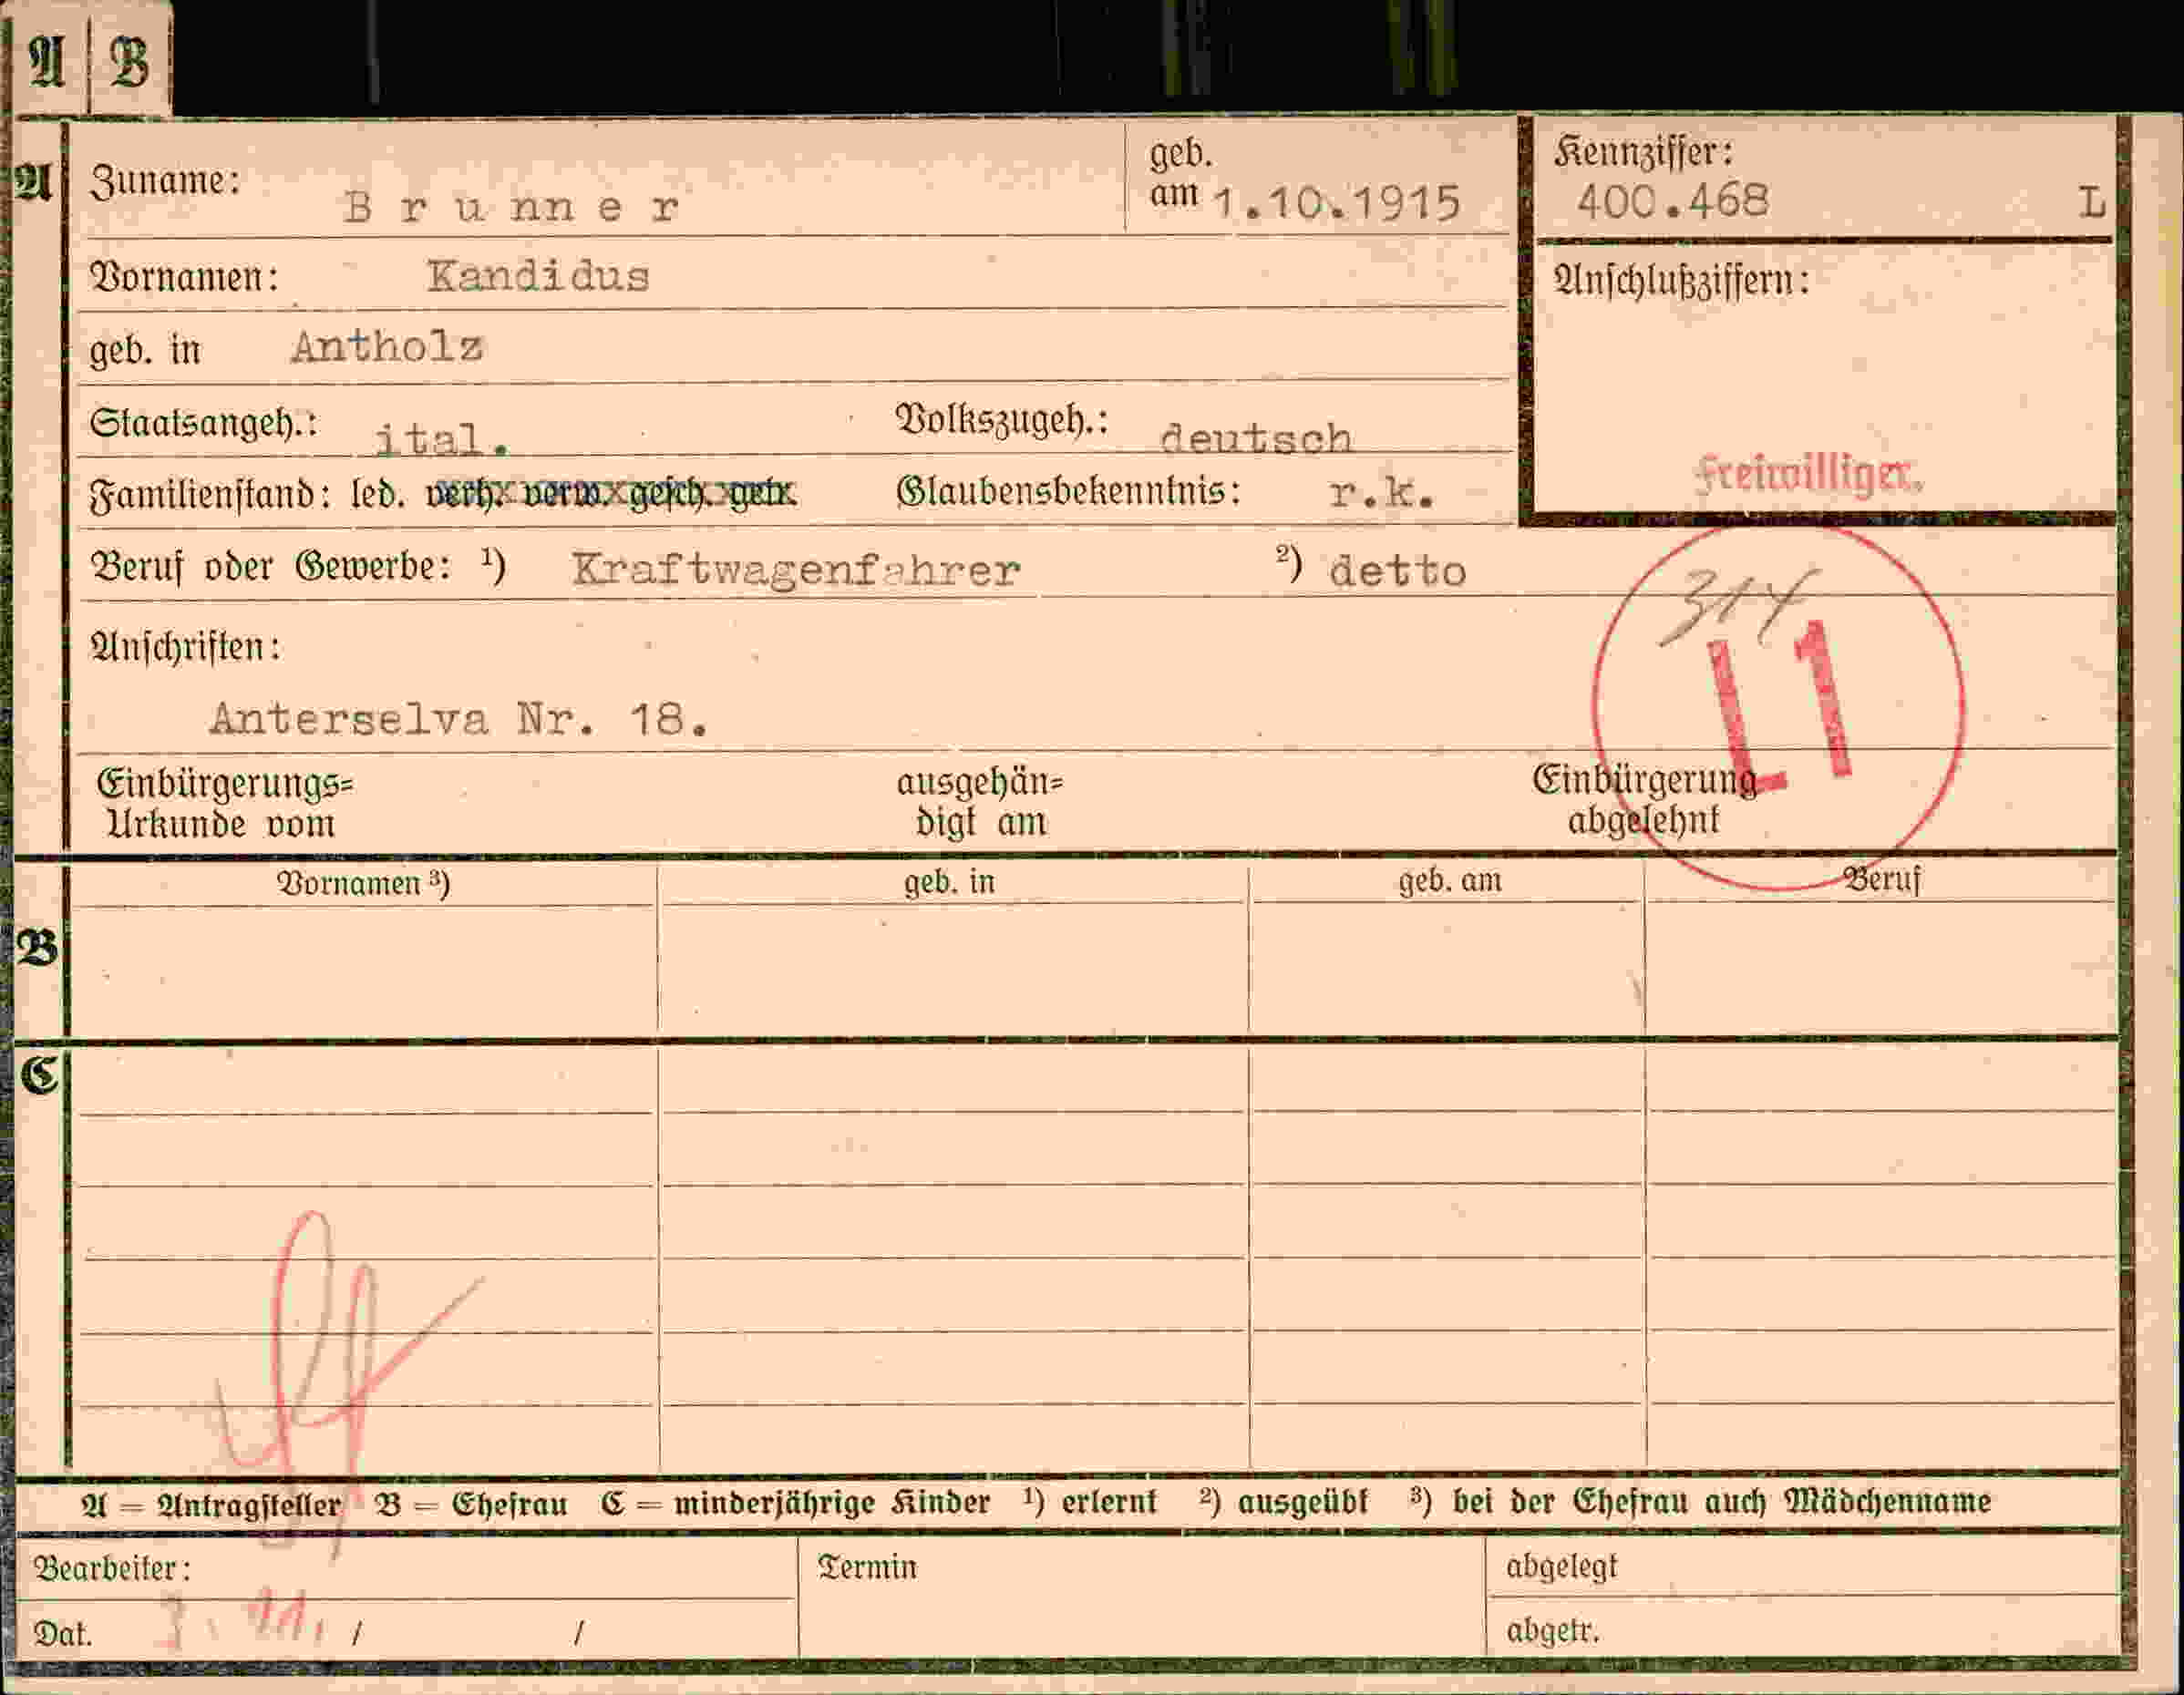 A B
A Zuname: Brunner geb. am 1.10.1915
Kennziffer: 400.468 L
Vornamen: Kandidus
Anschlußziffern:
geb. in Antholz
Staatsangeh.: ital. Volkszugeh.: deutsch
Freiwilliger.
Familienstand: led. verh. verw. gesch. getr. Glaubensbekenntnis: r.k.
Beruf oder Gewerbe: ¹) Kraftwagenfahrer ²) detto
314
L1
Anschriften:
Anterselva Nr. 18.
Einbürgerungs=
Urkunde vom
ausgehän=
digt am
Einbürgerung
abgelehnt
Vornamen ³) geb. in geb. am Beruf
B
C
A = Antragsteller B = Ehefrau C = minderjährige Kinder ¹) erlernt ²) ausgeübt ³) bei der Ehefrau auch Mädchenname
Bearbeiter: Termin abgelegt
Dat. 11. / / abgetr.